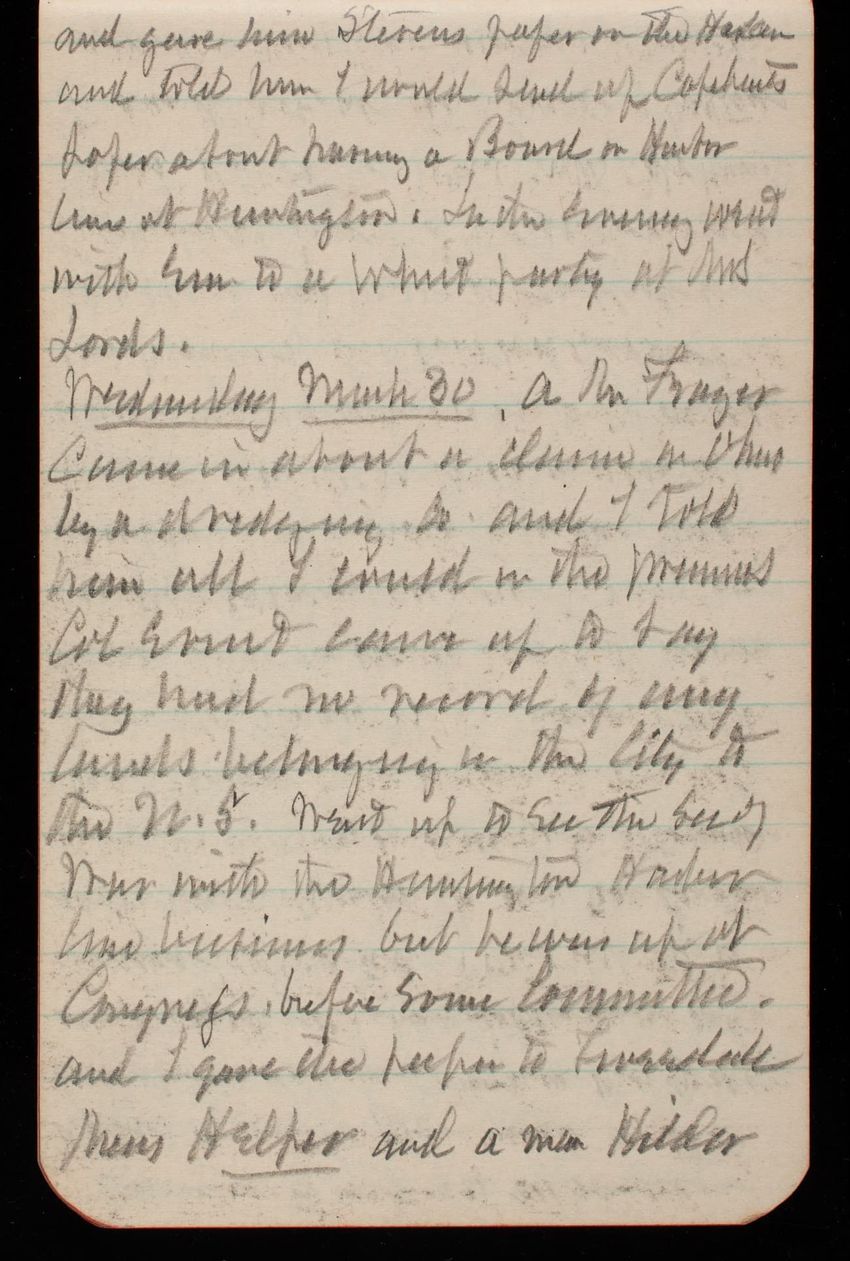 and gave him Stevens paper on the Harlem
and told him I would send up
paper about having a Board on Harbor
line at Huntington. In the evening went
with Em to a Whist party at Mrs
Lords.
Wednesday March 30, a Mr Frazer
came in about a claim on Ohio
by a dredging Co and I told
him all I could in the premises
Col Ernst came up to say
they had no record of any
lands belonging in the City to
the U.S. Went up to see the Secy
War with the Huntington Harbor
line business but he was up at
Congress before some Committee.
and I gave the paper to Tweedale
Helper and a man Hilder